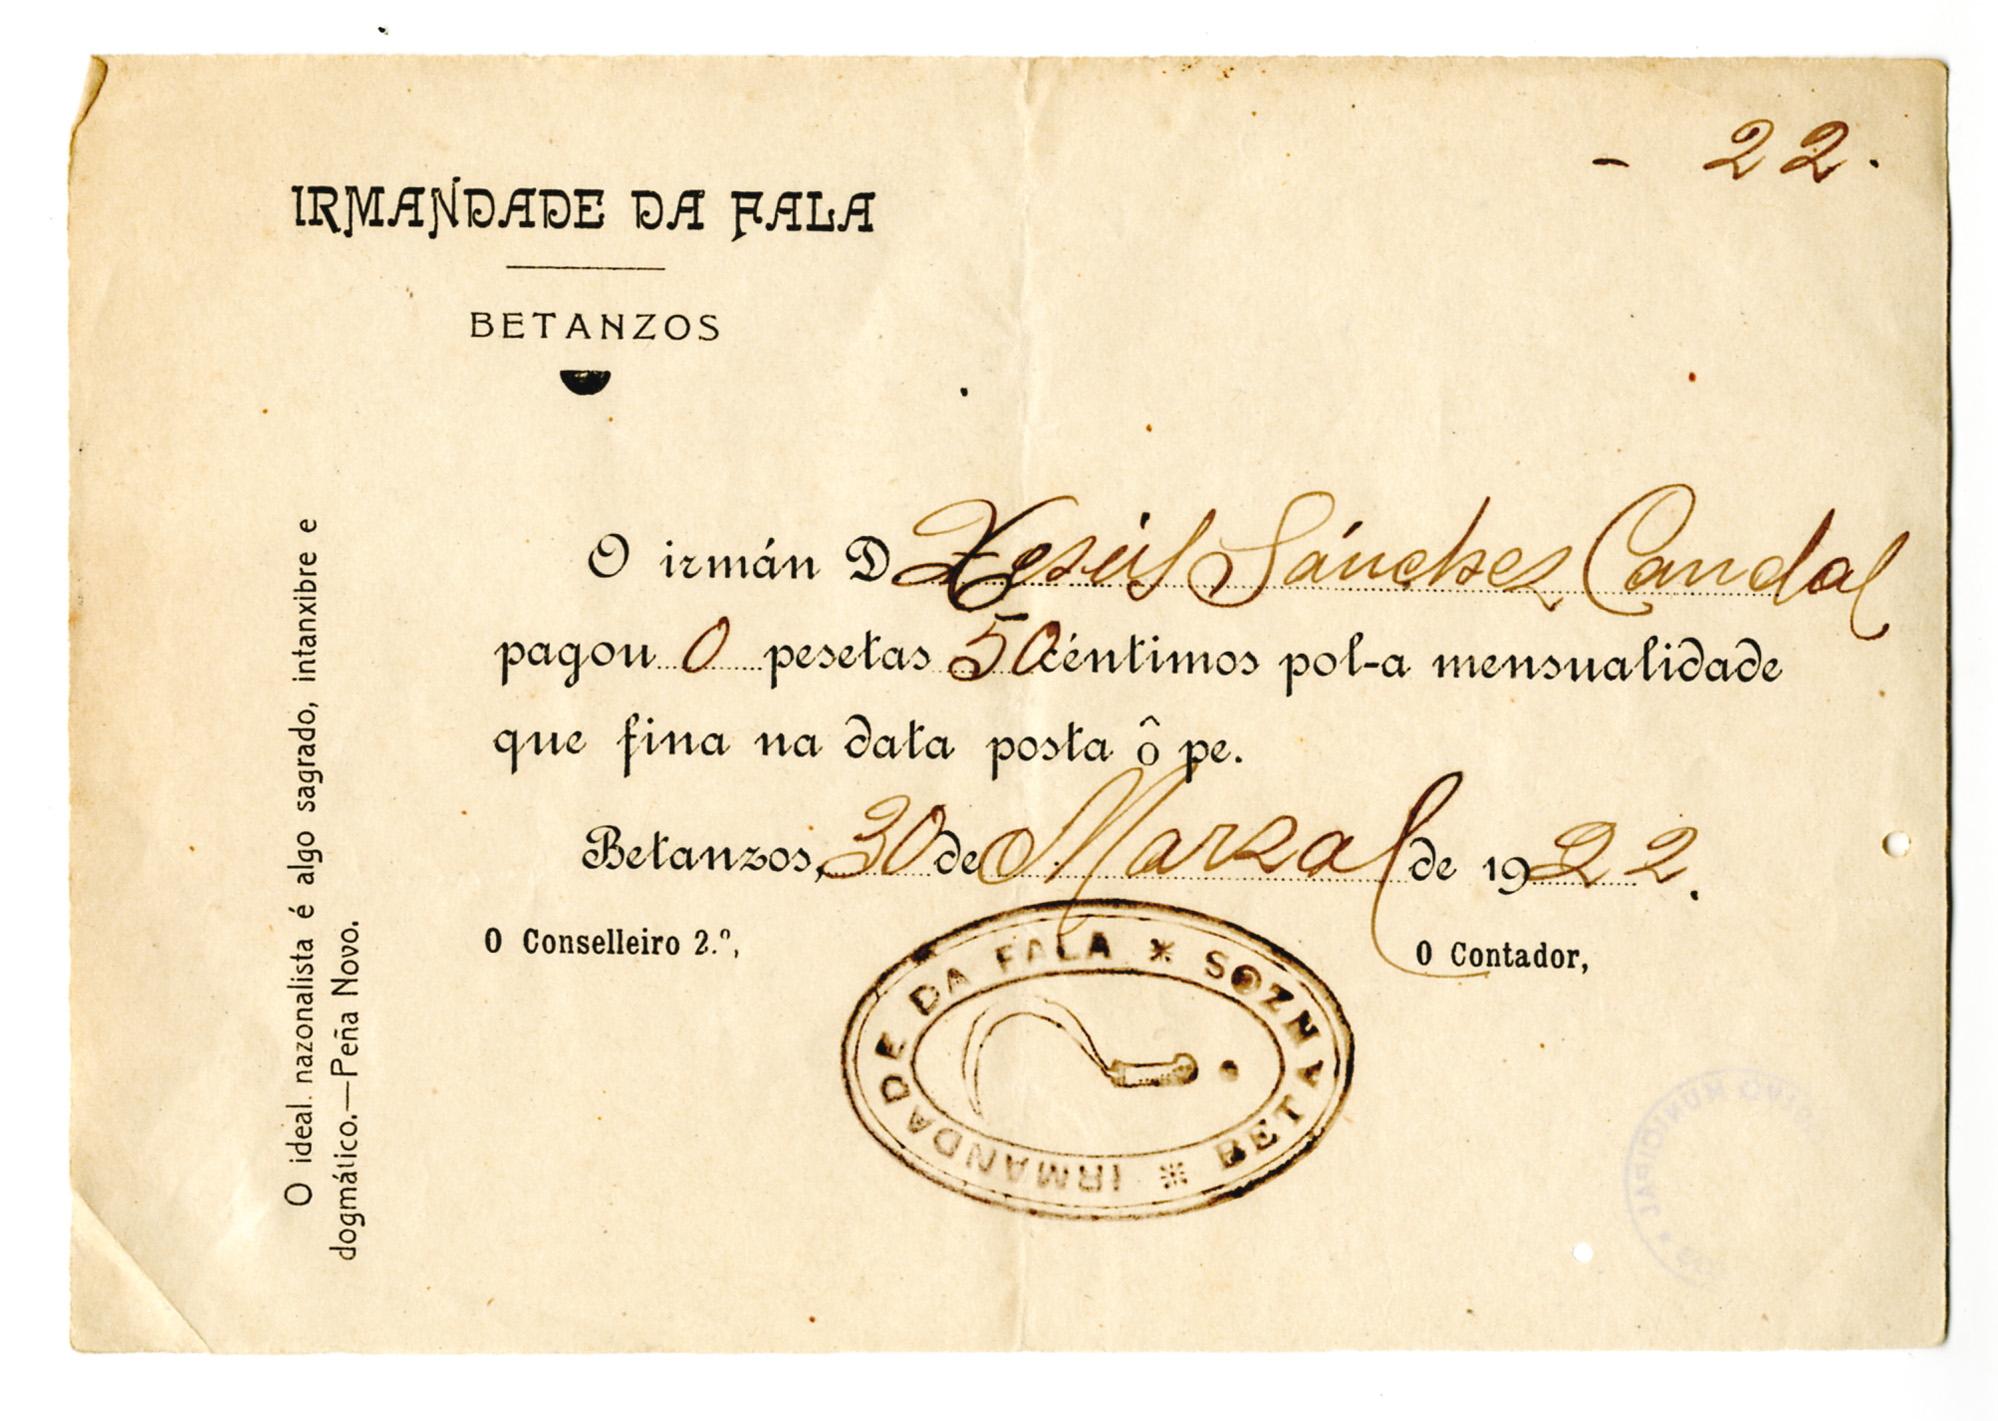 - 22.
IRMANDADE DA FALA
BETANZOS
O irmán D Xesús Sánchez Candal
pagou 0 pesetas 50 céntimos pol-a mensualidade
que fina na data posta ô pe.
Betanzos, 30 de Marzal de 1922.
O Conselleiro 2.º,
O Contador,
IRMANDADE DA FALA * BETANZOS *
O ideal nazonalista é algo sagrado, intanxibre e
dogmático.—Peña Novo.
MUNICIPAL